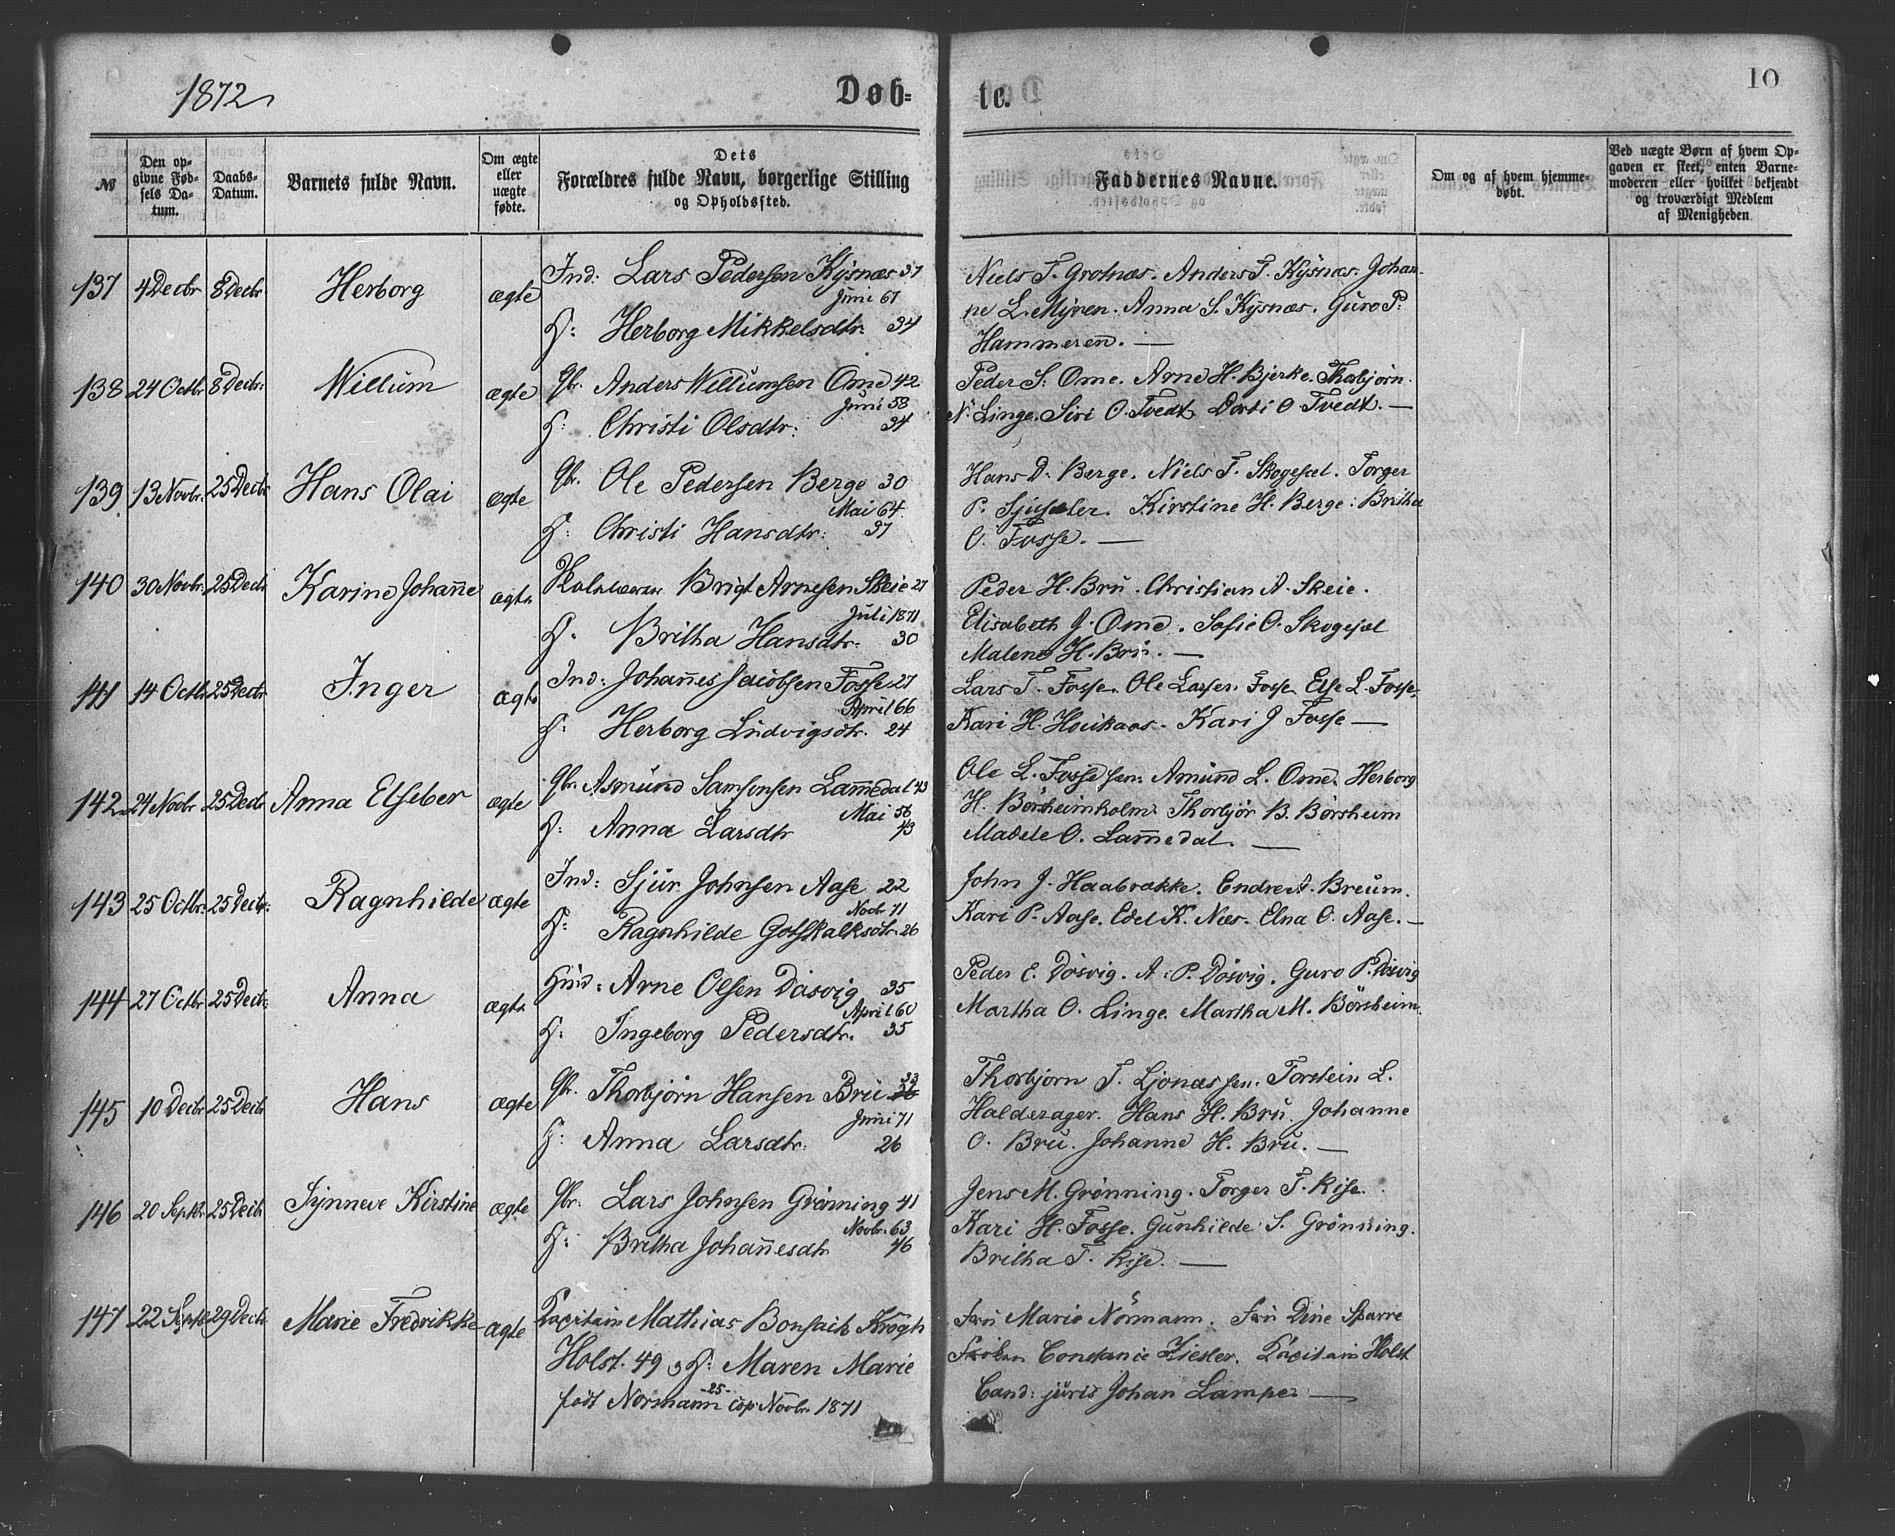 1872
Døb-
te.
10
№
Den op-
givne Fød-
sels Da-
tum.
Daabs-
Datum.
Barnets fulde Navn.
Om ægte
eller
uægte
fødte.
Dets
Forældres fulde Navn, borgerlige Stilling
og Opholdssted.
Faddernes Navne.
Om og af hvem hjemme-
døbt.
Ved uægte Børn af hvem Op-
gaven er skeet, enten Barne-
moderen eller hvilket bekjendt
og troværdigt Medlem
af Menigheden.
137 4 Decbr 8 Decbr Herborg ægte Ind: Lars Pedersen Kysnæs 37
Juni 67
H: Herborg Mikkelsdtr: 34
Niels T. Grotnæs. Anders T. Kysnæs. Johan-
ne L. Myren. Anna S. Kysnæs. Guro P:
Hammeren. —
138 24 Octbr 8 Decbr. Willum ægte Gbr. Anders Willumsen Ome 42
Juni 58
H: Christi Olsdtr: 34
Peder S: Ome. Arne H. Bjerke. Thorbjørn
N. Linge. Siri O. Tvedt. Dorti O Tvedt. —
139 13 Novbr. 25 Decbr Hans Olai ægte Gbr. Ole Pedersen Berge 30
Mai 64
H: Christi Hansdtr: 37
Hans D. Berge. Niels T. Skogesæl. Torger
P. Kirstine H. Berge. Britha
O. Fosse. —
140 30 Novbr. 25 Decbr Karine Johanne ægte Brigt Arnesen Skeie 27
Juli 1871
H. Britha Hansdtr. 30
Peder H. Bru. Christian A. Skeie.
Elisabeth J. Ome. Sofie O. Skogesæl
Malene H. Bru. —
141 14 Octbr 25 Decbr Inger ægte Ind: Johannes Jacobsen Fosse 27
April 66
H: Herborg Ludvigsdtr. 24
Lars T. Fosse. Ole Larsen Fosse. Else L. Fosse.
Kari H. Houkaas. Kari J Fosse —
142 24 Novbr 25 Decbr Anna Elseber ægte Gbr. Asmund Samsonsen Lammedal 43
Mai 56
H: Anna Larsdtr 43
Ole L. Fosse sen. Amund L. Ome. Herborg
H. Børsheimholm. Thorbjør B. Børsheim
Madele O. Lammedal. —
143 25 Octbr. 25 Decbr. Ragnhilde ægte Ind: Sjur Johnsen Aase 22
Novbr 71
H: Ragnhilde Gotskalksdtr. 26
John J. Haabrække. Endre A. Breum.
Kari P. Aase. Edel K. Næs. Elna O. Aase. —
144 27 Octbr 25 Decbr: Anna ægte Huusd: Arne Olsen Døsvig 35
April 60
H: Ingeborg Pedersdtr. 35
Peder E. Døsvig. A: P. Døsvig. Guro P. Døsvig
Martha O. Linge. Martha M. Børsheim.
145 10 Decbr 25 Decbr Hans ægte Gbr. Thorbjørn Hansen Bru 33
Juni 71
H: Anna Larsdtr: 26
Thorbjørn T. Ljonæs sen. Torstein L.
Halderager. Hans H. Bru. Johanne
O. Bru. Johanne H. Bru. —
146 20 Septbr 25 Decbr Synneve Kirstine ægte Gbr: Lars Johnsen Grønning 41
Novbr. 63
H: Britha Johannesdtr 46
Jens M. Grønning. Torger T. Rise.
Kari H. Fosse. Gunhilde S. Grønning.
Britha T. Rise. —
147 22 Septbr 29 Decbr Marie Fredrikke ægte Kapitain Mathias Bonsach Krogh
Holst. 49 og H: Maren Marie
født Normann 25 cop: Novbr. 1871
Fru Marie Normann. Fru Dine Sparre
Frøken Constance Ziesler. Kapitain Holst
Cand: juris Johan Lampe —